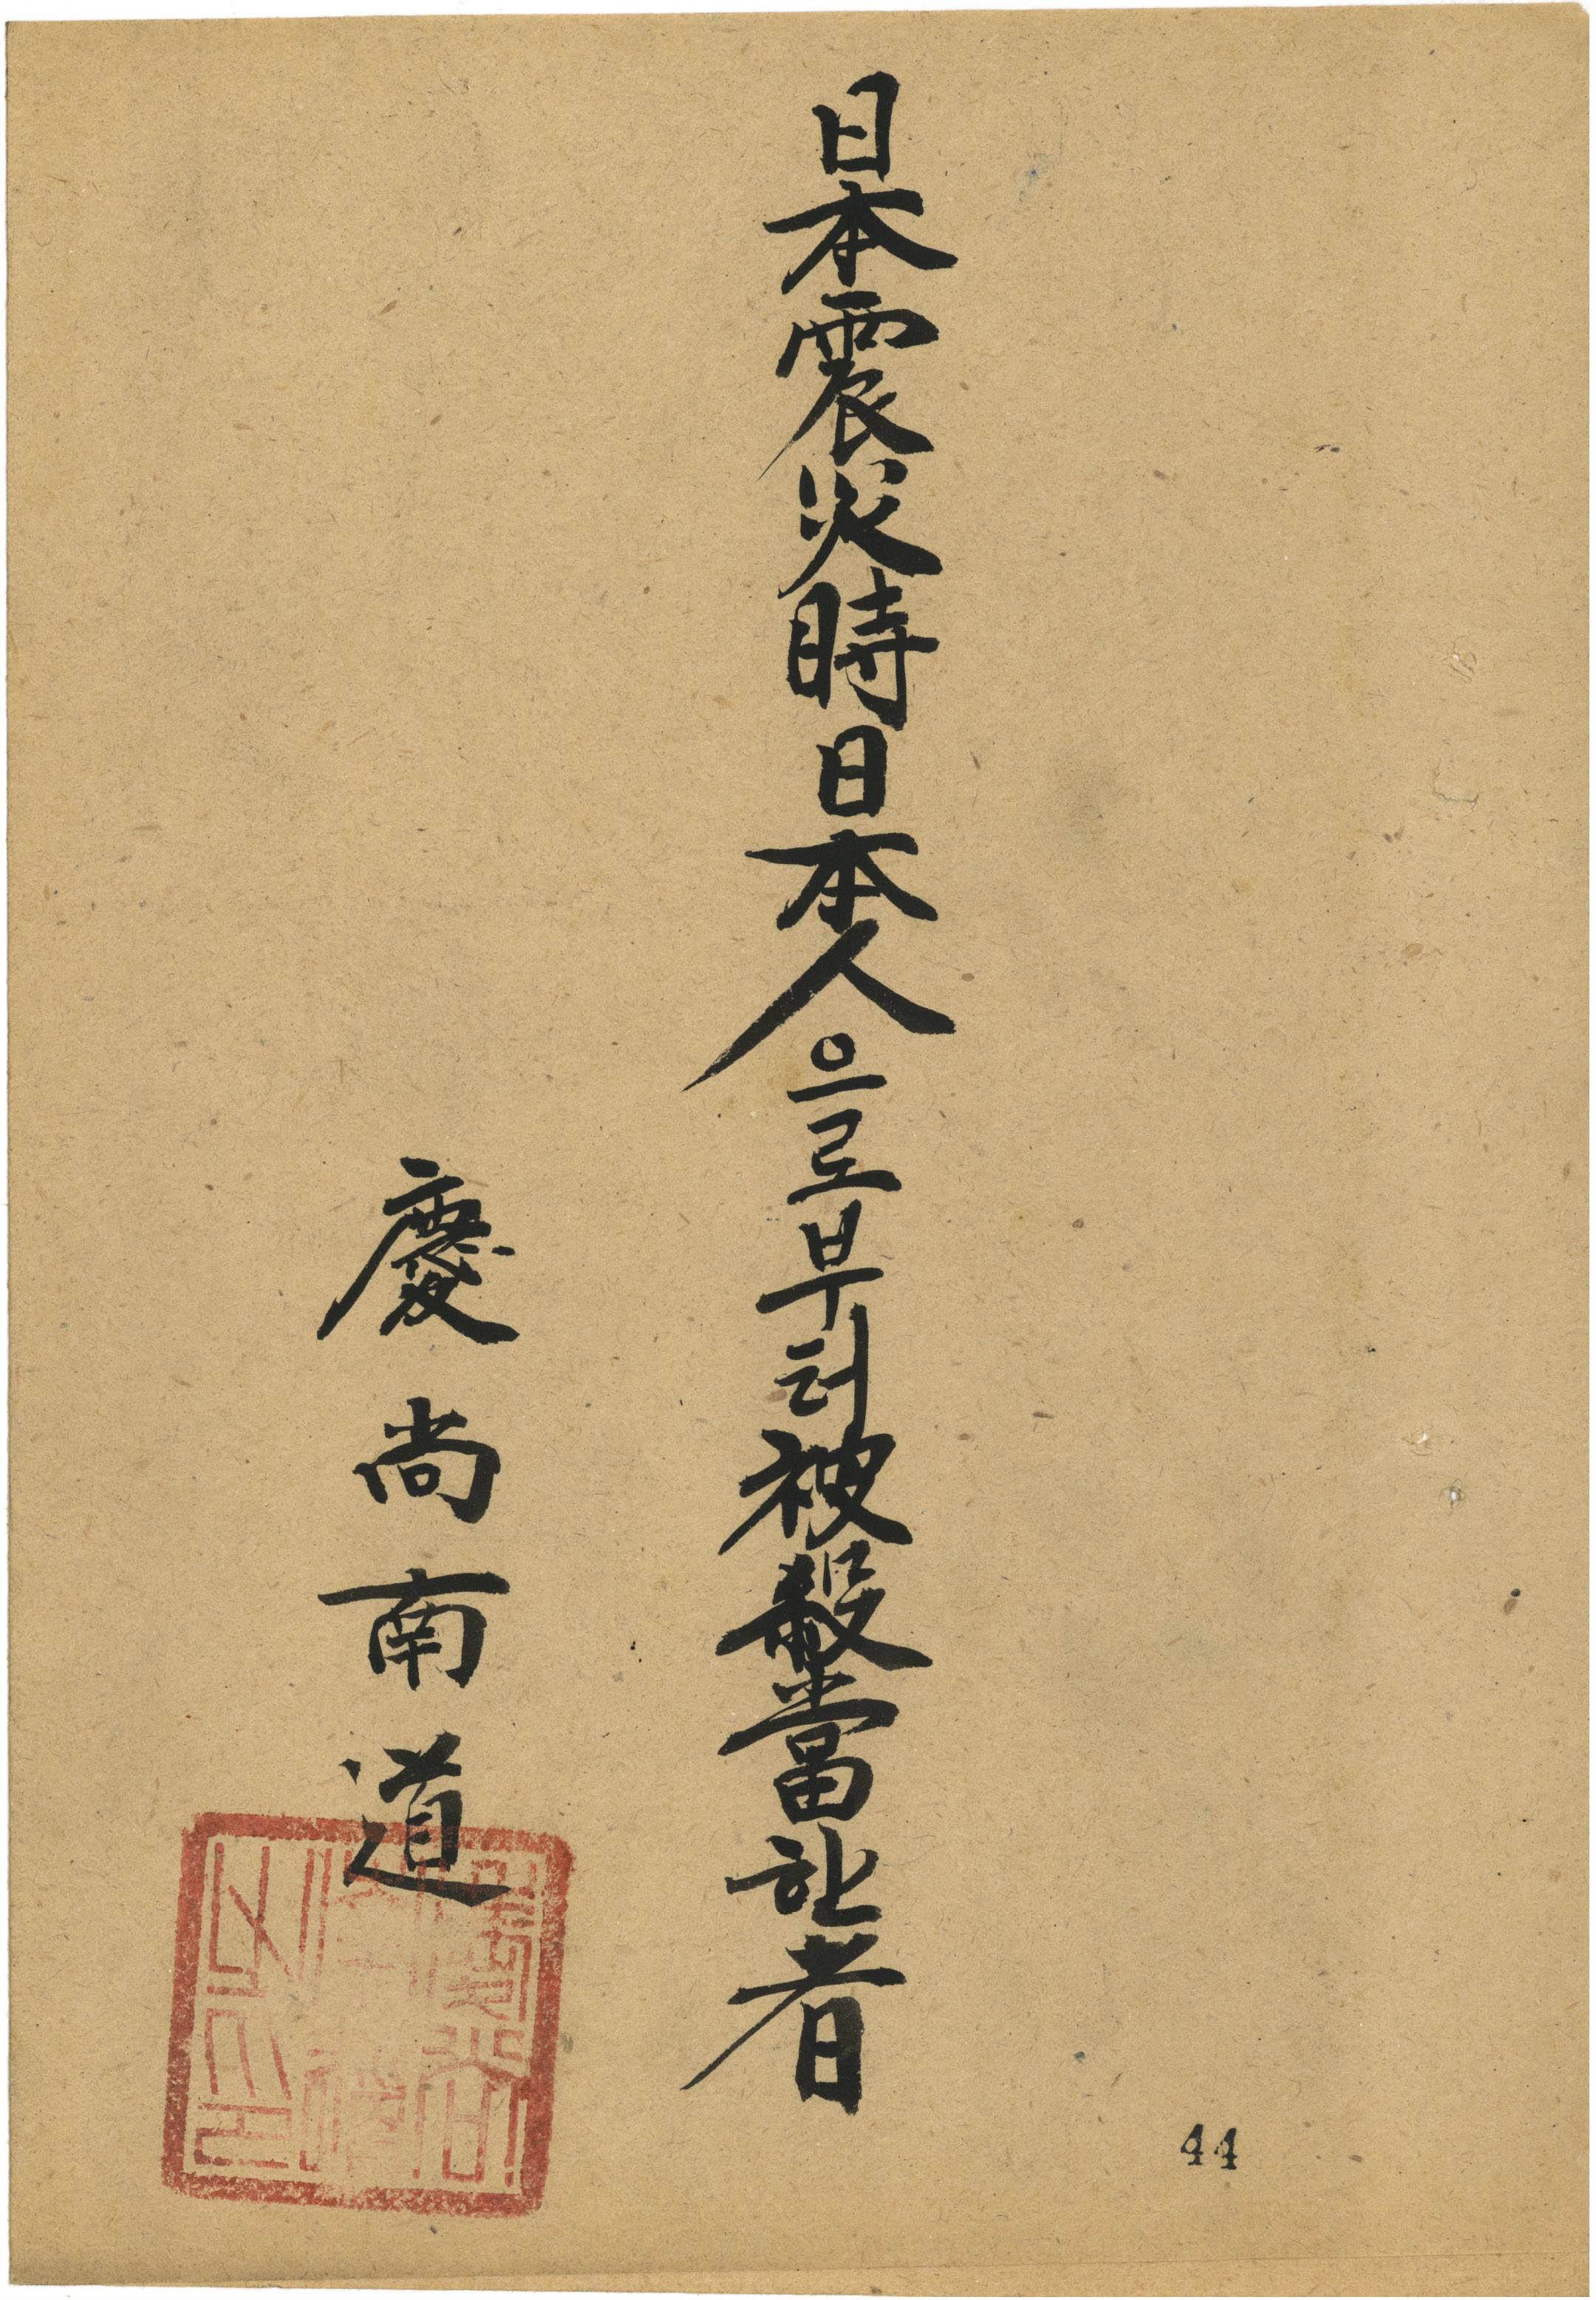 日本震災時日本人으로부터被殺當한者
慶尚南道
44